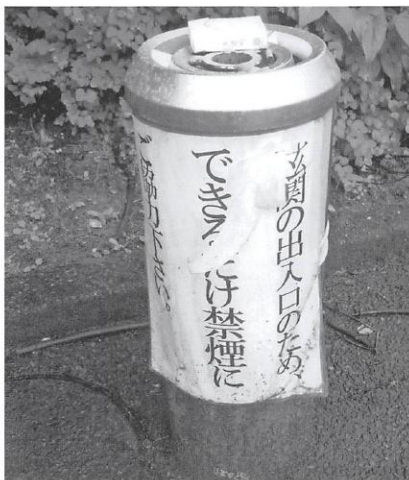 玄関の出入口のため、
できるだけ禁煙に
ご協力下さい。